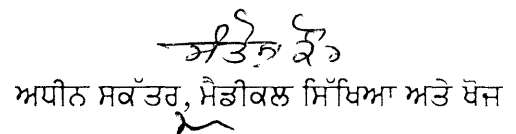 ਸੰਤੋਸ਼ ਕੌਰ
ਅਧੀਨ ਸਕੱਤਰ, ਮੈਡੀਕਲ ਸਿੱਖਿਆ ਅਤੇ ਖੋਜ